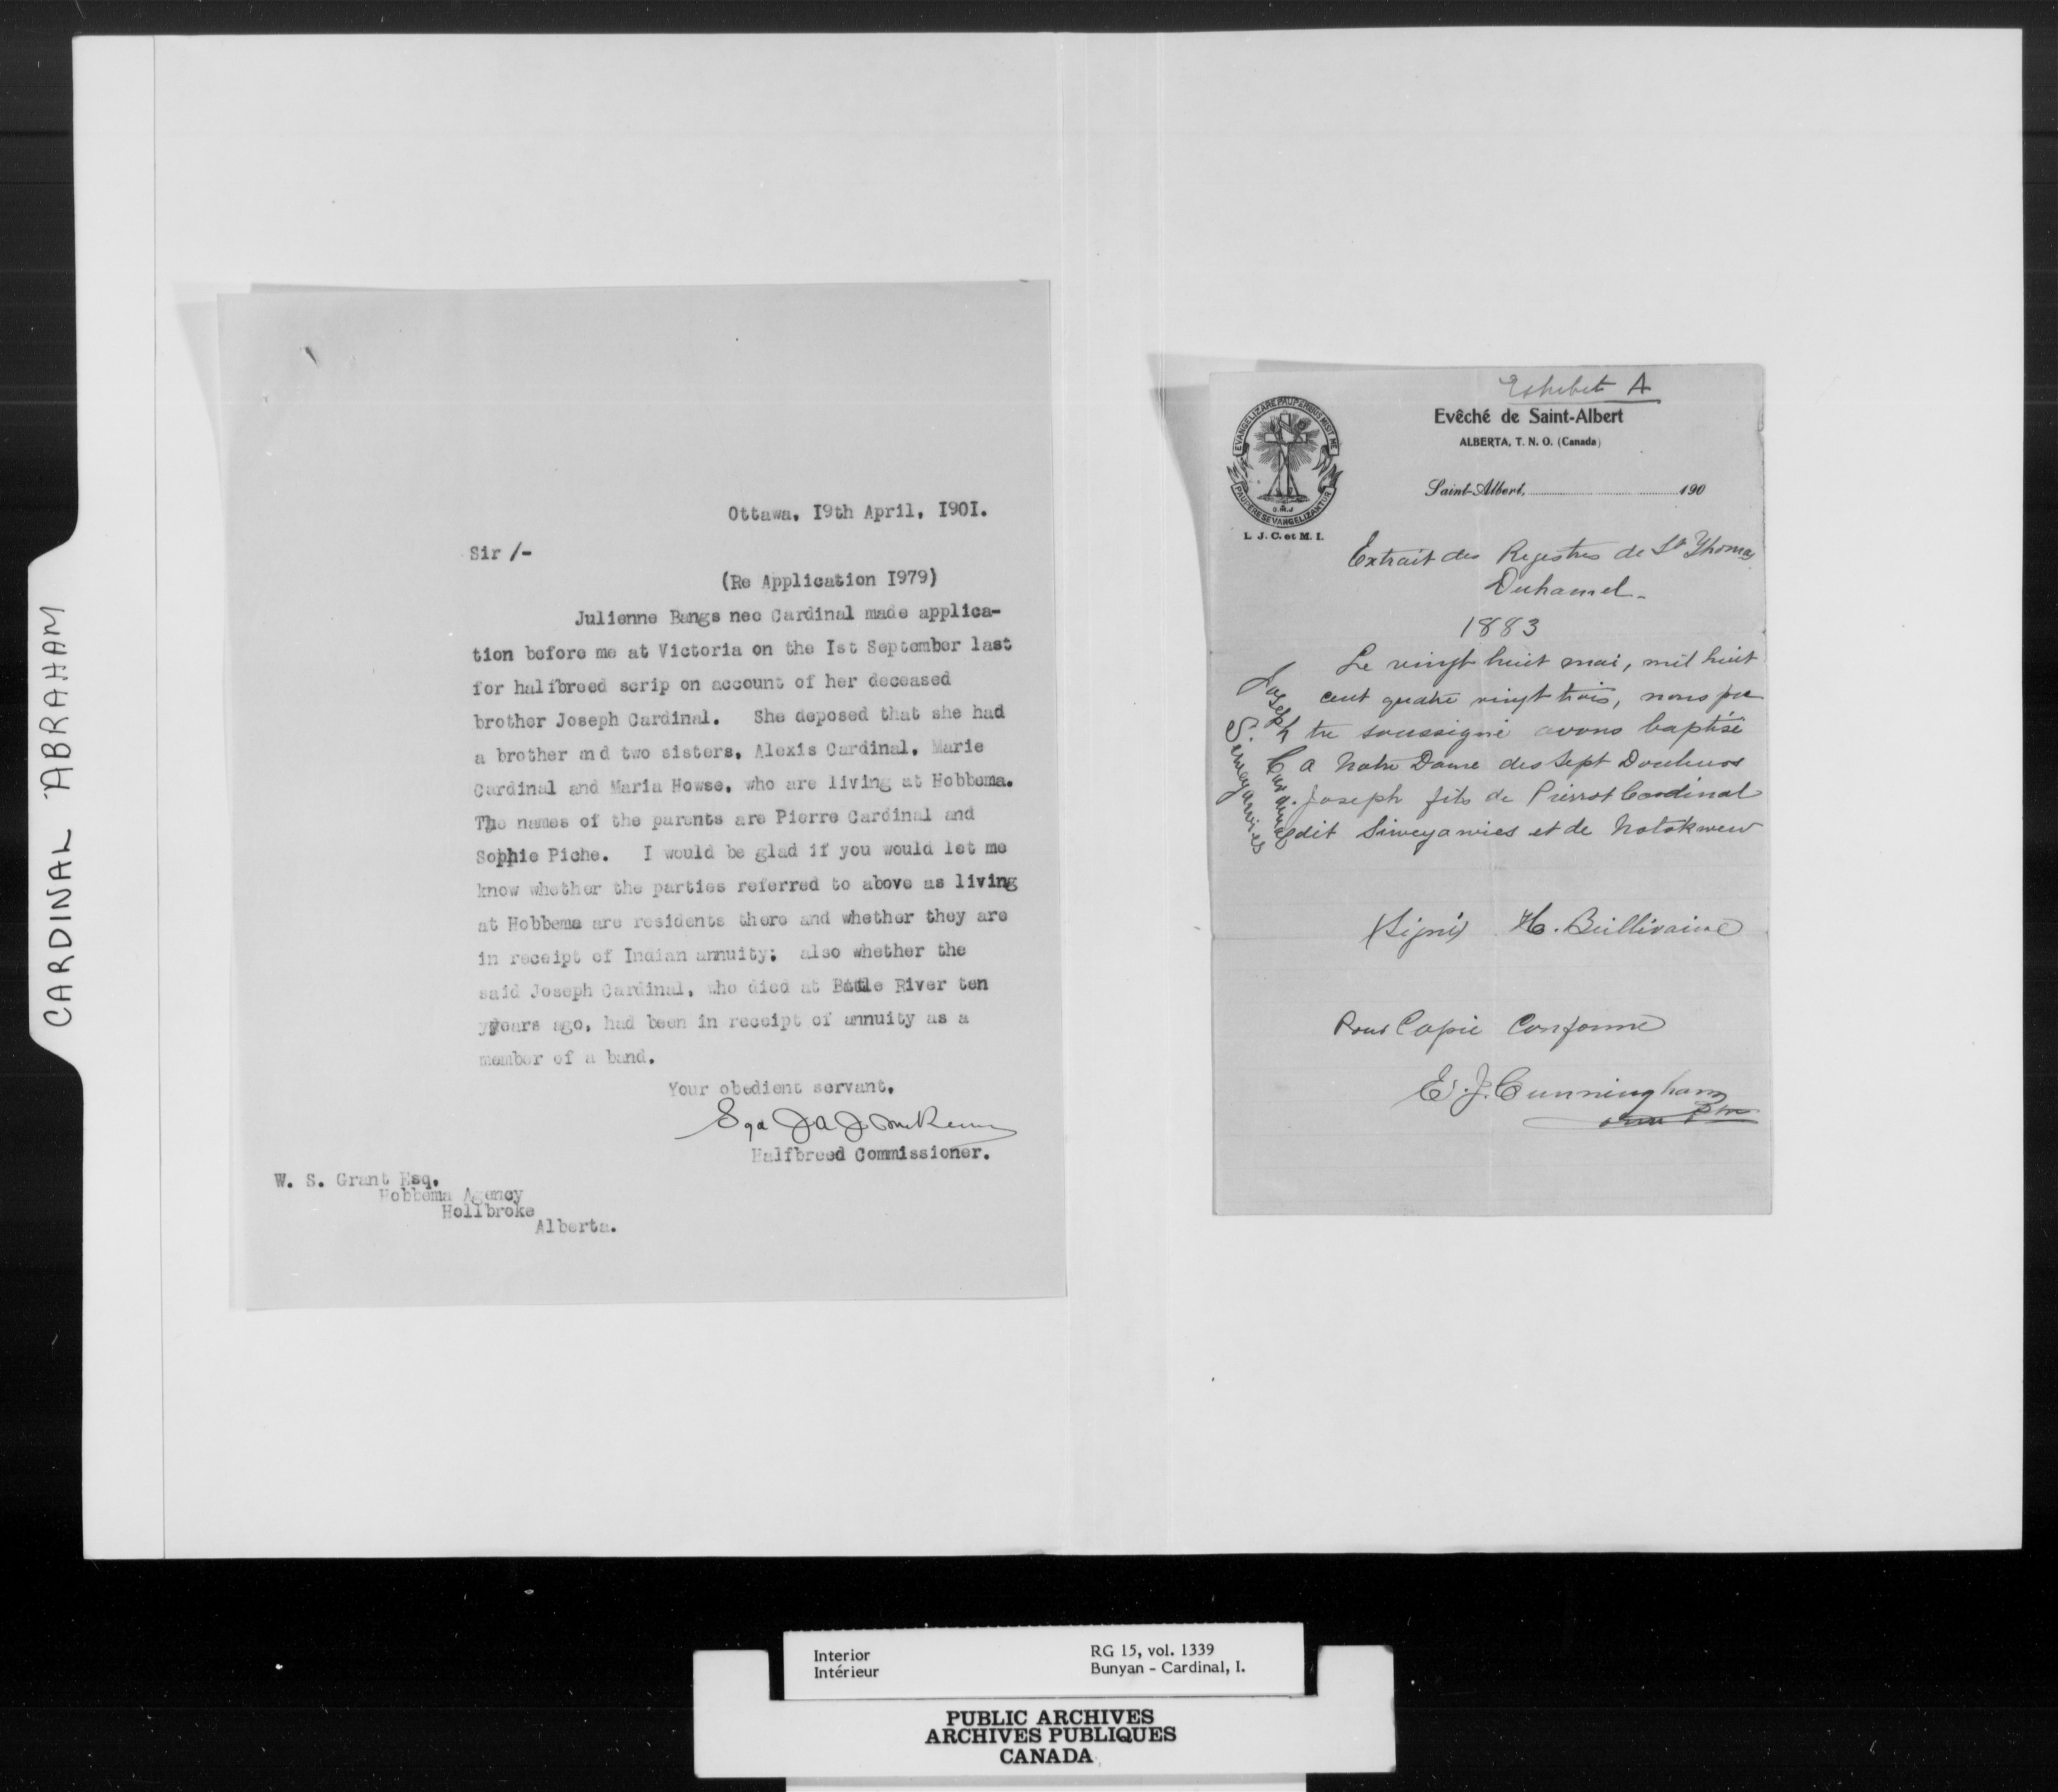 CARDINAL ABRAHAM
Ottawa, I9th April, I90I.
Sir /-
(Re Application I979)
Julienne Bangs nee Cardinal made applica-
tion before me at Victoria on the Ist September last
for halfbreed scrip on account of her deceased
brother Joseph Cardinal. She deposed that she had
a brother and two sisters, Alexis Cardinal, Marie
Cardinal and Maria Howse, who are living at Hobbema.
The names of the parents are Pierre Cardinal and
Sophie Piche. I would be glad if you would let me
know whether the parties referred to above as living
at Hobbema are residents there and whether they are
in receipt of Indian annuity; also whether the
said Joseph Cardinal, who died at Battle River ten
years ago, had been in receipt of annuity as a
member of a band.
Your obedient servant,
Sgd J A J McKenna
Halfbreed Commissioner.
W. S. Grant Esq.
Hobbema Agency
Hollbroke
Alberta.
Exhibit A
EVANGELIZARE PAUPERIBUS MISIT ME
PAUPERES EVANGELIZANTUR
O.M.J
L. J. C. et M. I.
Evêché de Saint-Albert
ALBERTA, T. N. O. (Canada)
Saint-Albert, 190
Extrait des Registres de St Thomas
Duhamel.
1883
Le vingt huit mai, mil huit
cent quatre vingt trois, nous prê
tre soussigné avons baptisé
a Notre Dame des Sept Douleurs
Joseph fils de Pierrot Cardinal
dit Siweyanies et de Notokwew
Joseph Cardinal
Siweyanies
(Signé) H.
Pour Copie Conforme
E. J. Cunningham
Interior
Intérieur
RG 15, vol. 1339
Bunyan - Cardinal, I.
PUBLIC ARCHIVES
ARCHIVES PUBLIQUES
CANADA